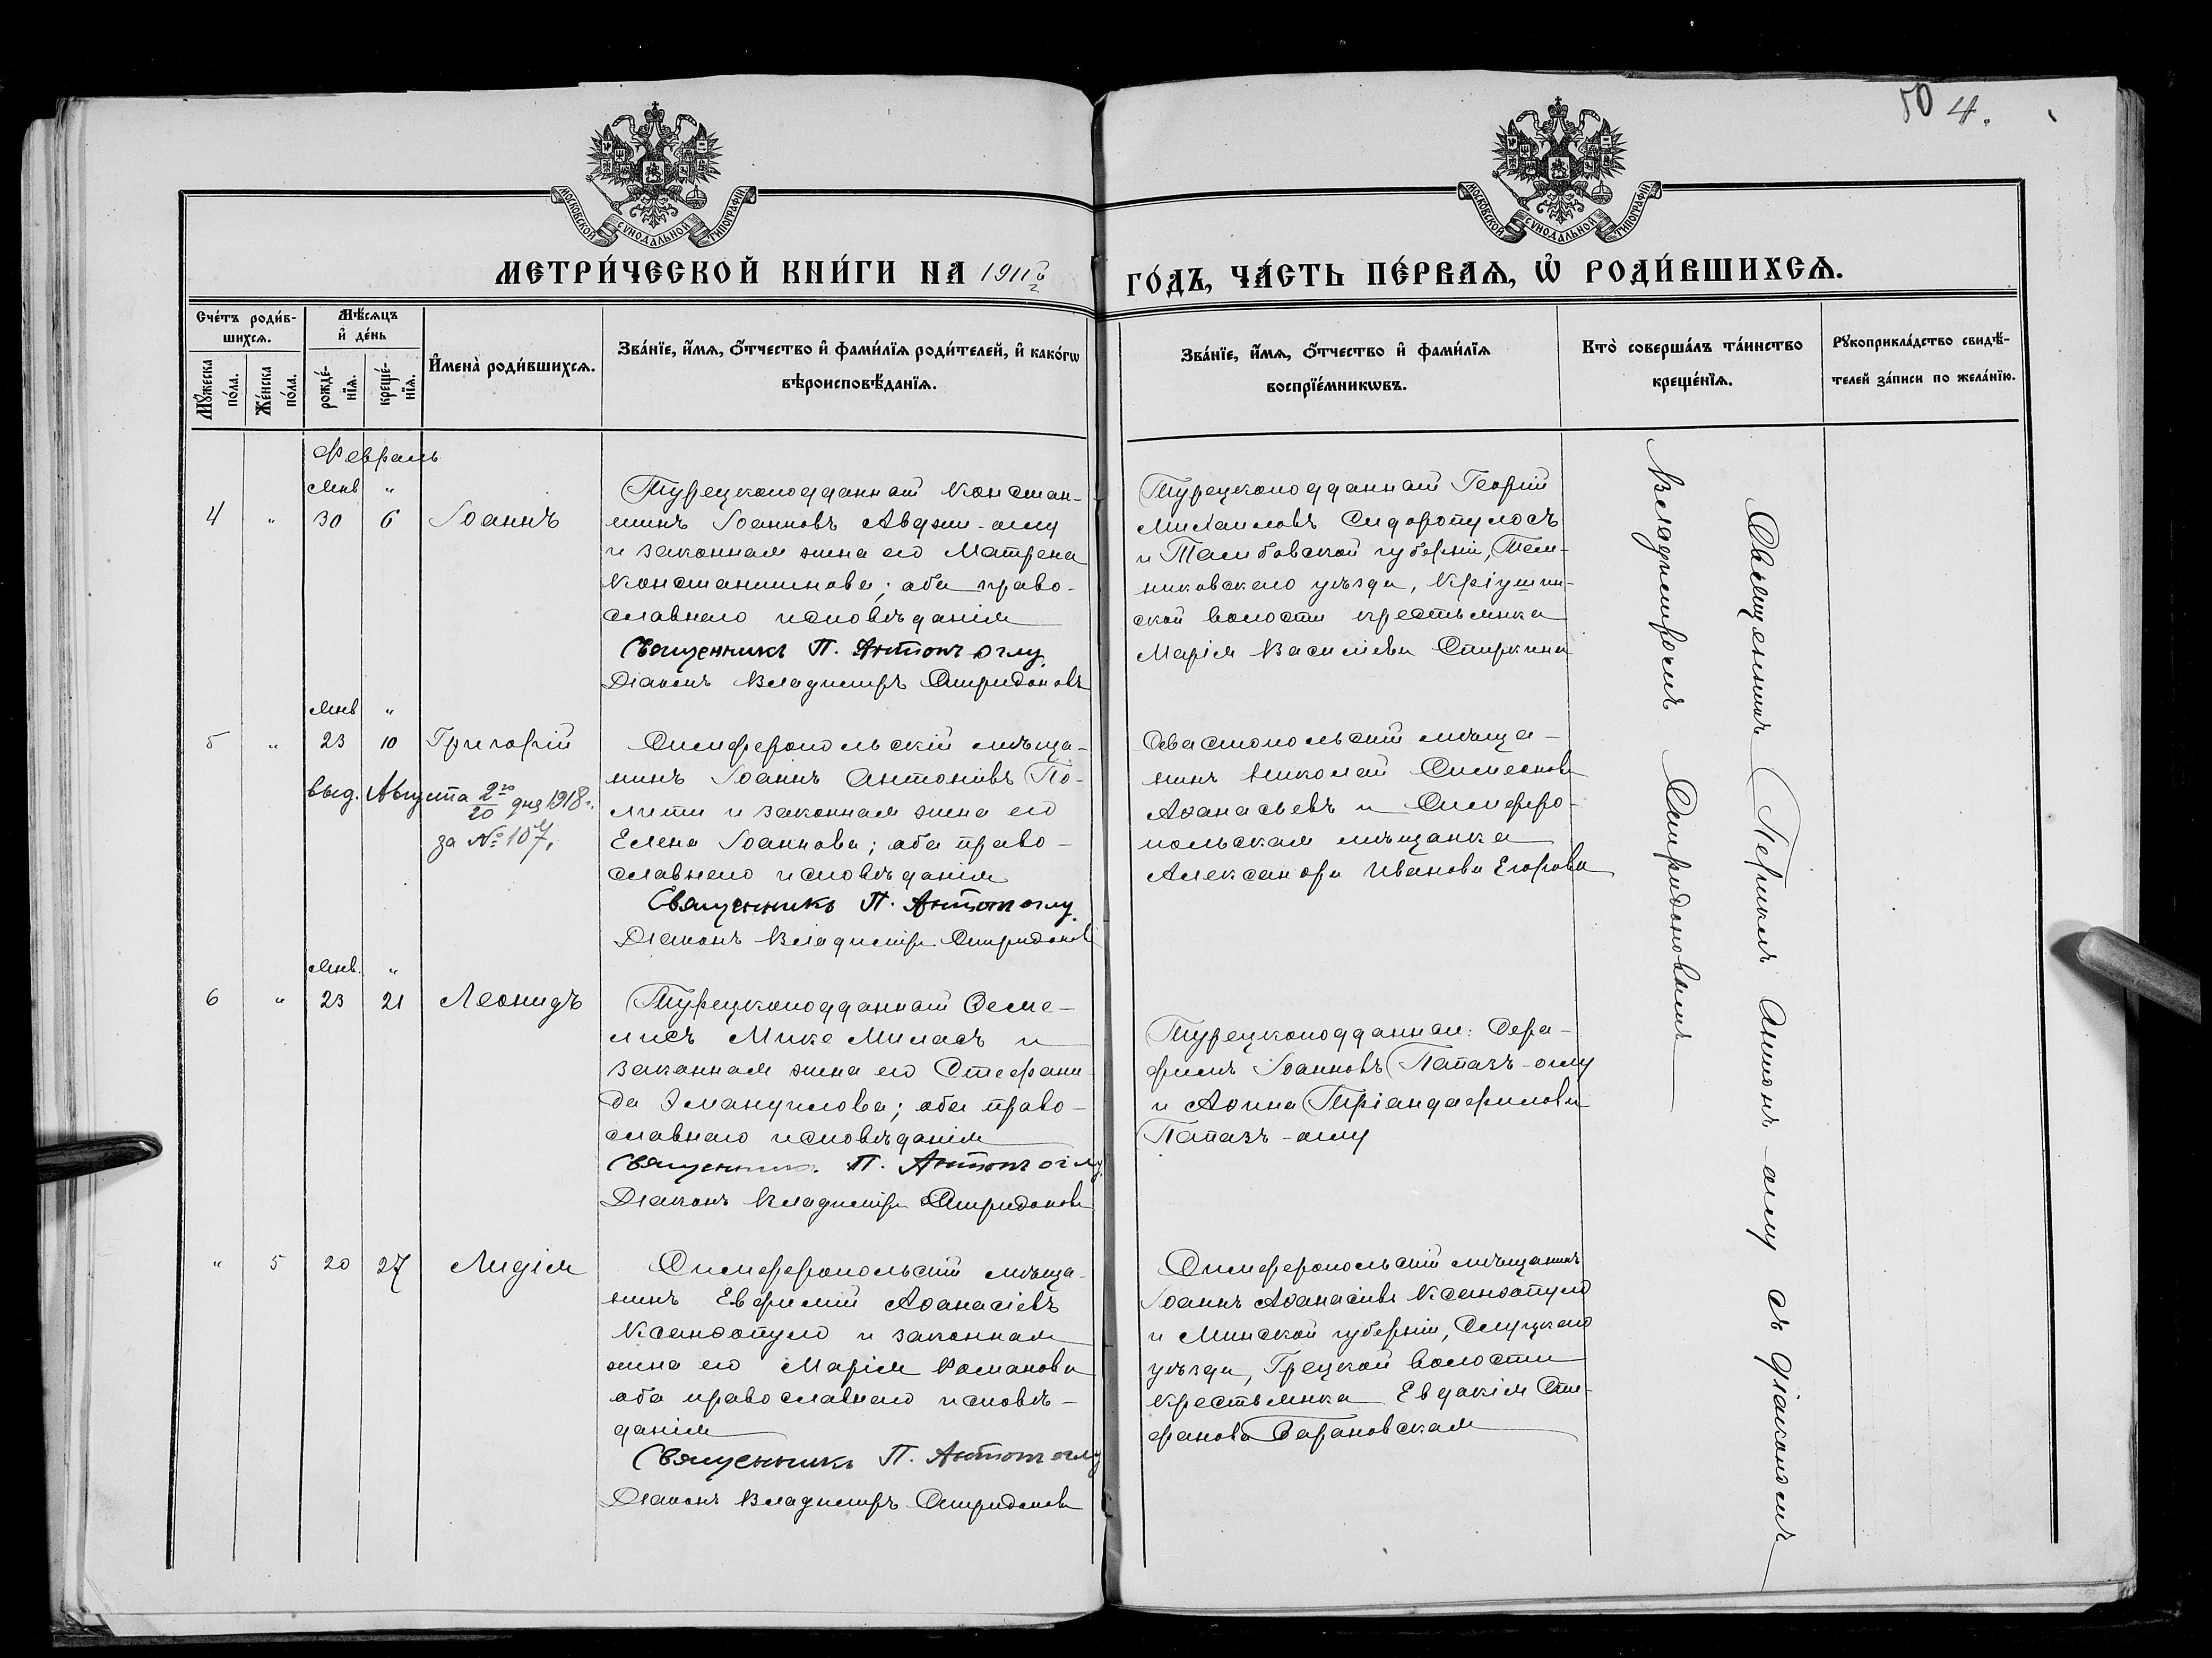 50 4.
МОСКОВСКОЙ СУНОДАЛЬНОЙ ТИПОГРАФІИ
МОСКОВСКОЙ СУНОДАЛЬНОЙ ТИПОГРАФІИ
МЕТРИ́ЧЕСКОЙ КНИ́ГИ НА 1911й
ГО́ДЪ, ЧА́СТЬ ПЕ́РВАѦ, Ѽ РОДИ́ВШИХСѦ.
Сче́тъ роди́в-
шихсѧ.
Мꙋ́жеска по́ла.
Же́нска по́ла.
Мѣ́сѧцъ
и҆ де́нь
рожде́-
нїѧ.
креще́-
нїѧ.
И҆мена̀ роди́вшихсѧ.
Зва́нїе, и҆́мѧ, ѻ҆́тчество и҆ фами́лїѧ роди́телей, и҆ како́гѡ
вѣроисповѣ́данїѧ.
Зва́нїе, и҆́мѧ, ѻ҆́тчество и҆ фами́лїѧ
воспрїе́мникѡвъ.
Кто̀ соверша́лъ та́инство
креще́нїѧ.
Рꙋкоприкла́дство свидѣ́-
телей за́писи по жела́нїю.
Февраль
Янв "
4 " 30 6 Іоаннъ
Турецкоподданный Констан-
тинъ Іоанновъ Авджи-оглу
и законная жена его Матрена
Константинова; оба право-
славнаго исповѣданія
Священникъ П. Антонъ оглу
Діаконъ Владиміръ Спиридоновъ
Турецкоподданный Георгій
Михаиловъ Сидоропулосъ
и Тамбовской губерніи, Тем-
никовскаго уѣзда, Кріушин-
ской волости крестьянка
Марія Васильева Спиркина
Янв "
5 " 23 10 Григорій
выд. Августа 2го/20 дня 1918 г.
за № 107.
Симферопольскій мѣща-
нинъ Іоаннъ Антоніевъ По-
лити и законная жена его
Елена Іоаннова; оба право-
славнаго исповѣданія
Священникъ П. Антонъ оглу
Діаконъ Владиміръ Спиридоновъ
Севастопольскій мѣща-
нинъ Николай Симеоновъ
Аѳанасьевъ и Симферо-
польская мѣщанка
Александра Иванова Егорова
Янв. "
6 " 23 21 Леонидъ
Турецкоподданный Селе-
лисъ Мике Миласъ и
законная жена его Стефани-
да Эмануилова; оба право-
славнаго исповѣданія
Священникъ П. Антонъ оглу
Діаконъ Владиміръ Спиридоновъ
Турецкоподданные: Сера-
фимъ Іоанновъ Папазъ-оглу
и Аѳина Тріандафилова
Папазъ-оглу
" 5 20 27 Лидія
Симферопольскій мѣща-
нинъ Евфимій Аѳанасіевъ
Ксандопуло и законная
жена его Марія Романова
оба православнаго исповѣ-
данія
Священникъ П. Антонъ оглу
Діаконъ Владиміръ Спиридоновъ
Симферопольскій мѣщанинъ
Іоаннъ Аѳанасіевъ Ксандопуло
и Минской губерніи, Слуцкаго
уѣзда, Грецкой волости
крестьянка Евдокія Сте-
фанова Барановская
Священникъ Периклъ Антонъ-оглу съ діакономъ
Владиміромъ Спиридоновымъ